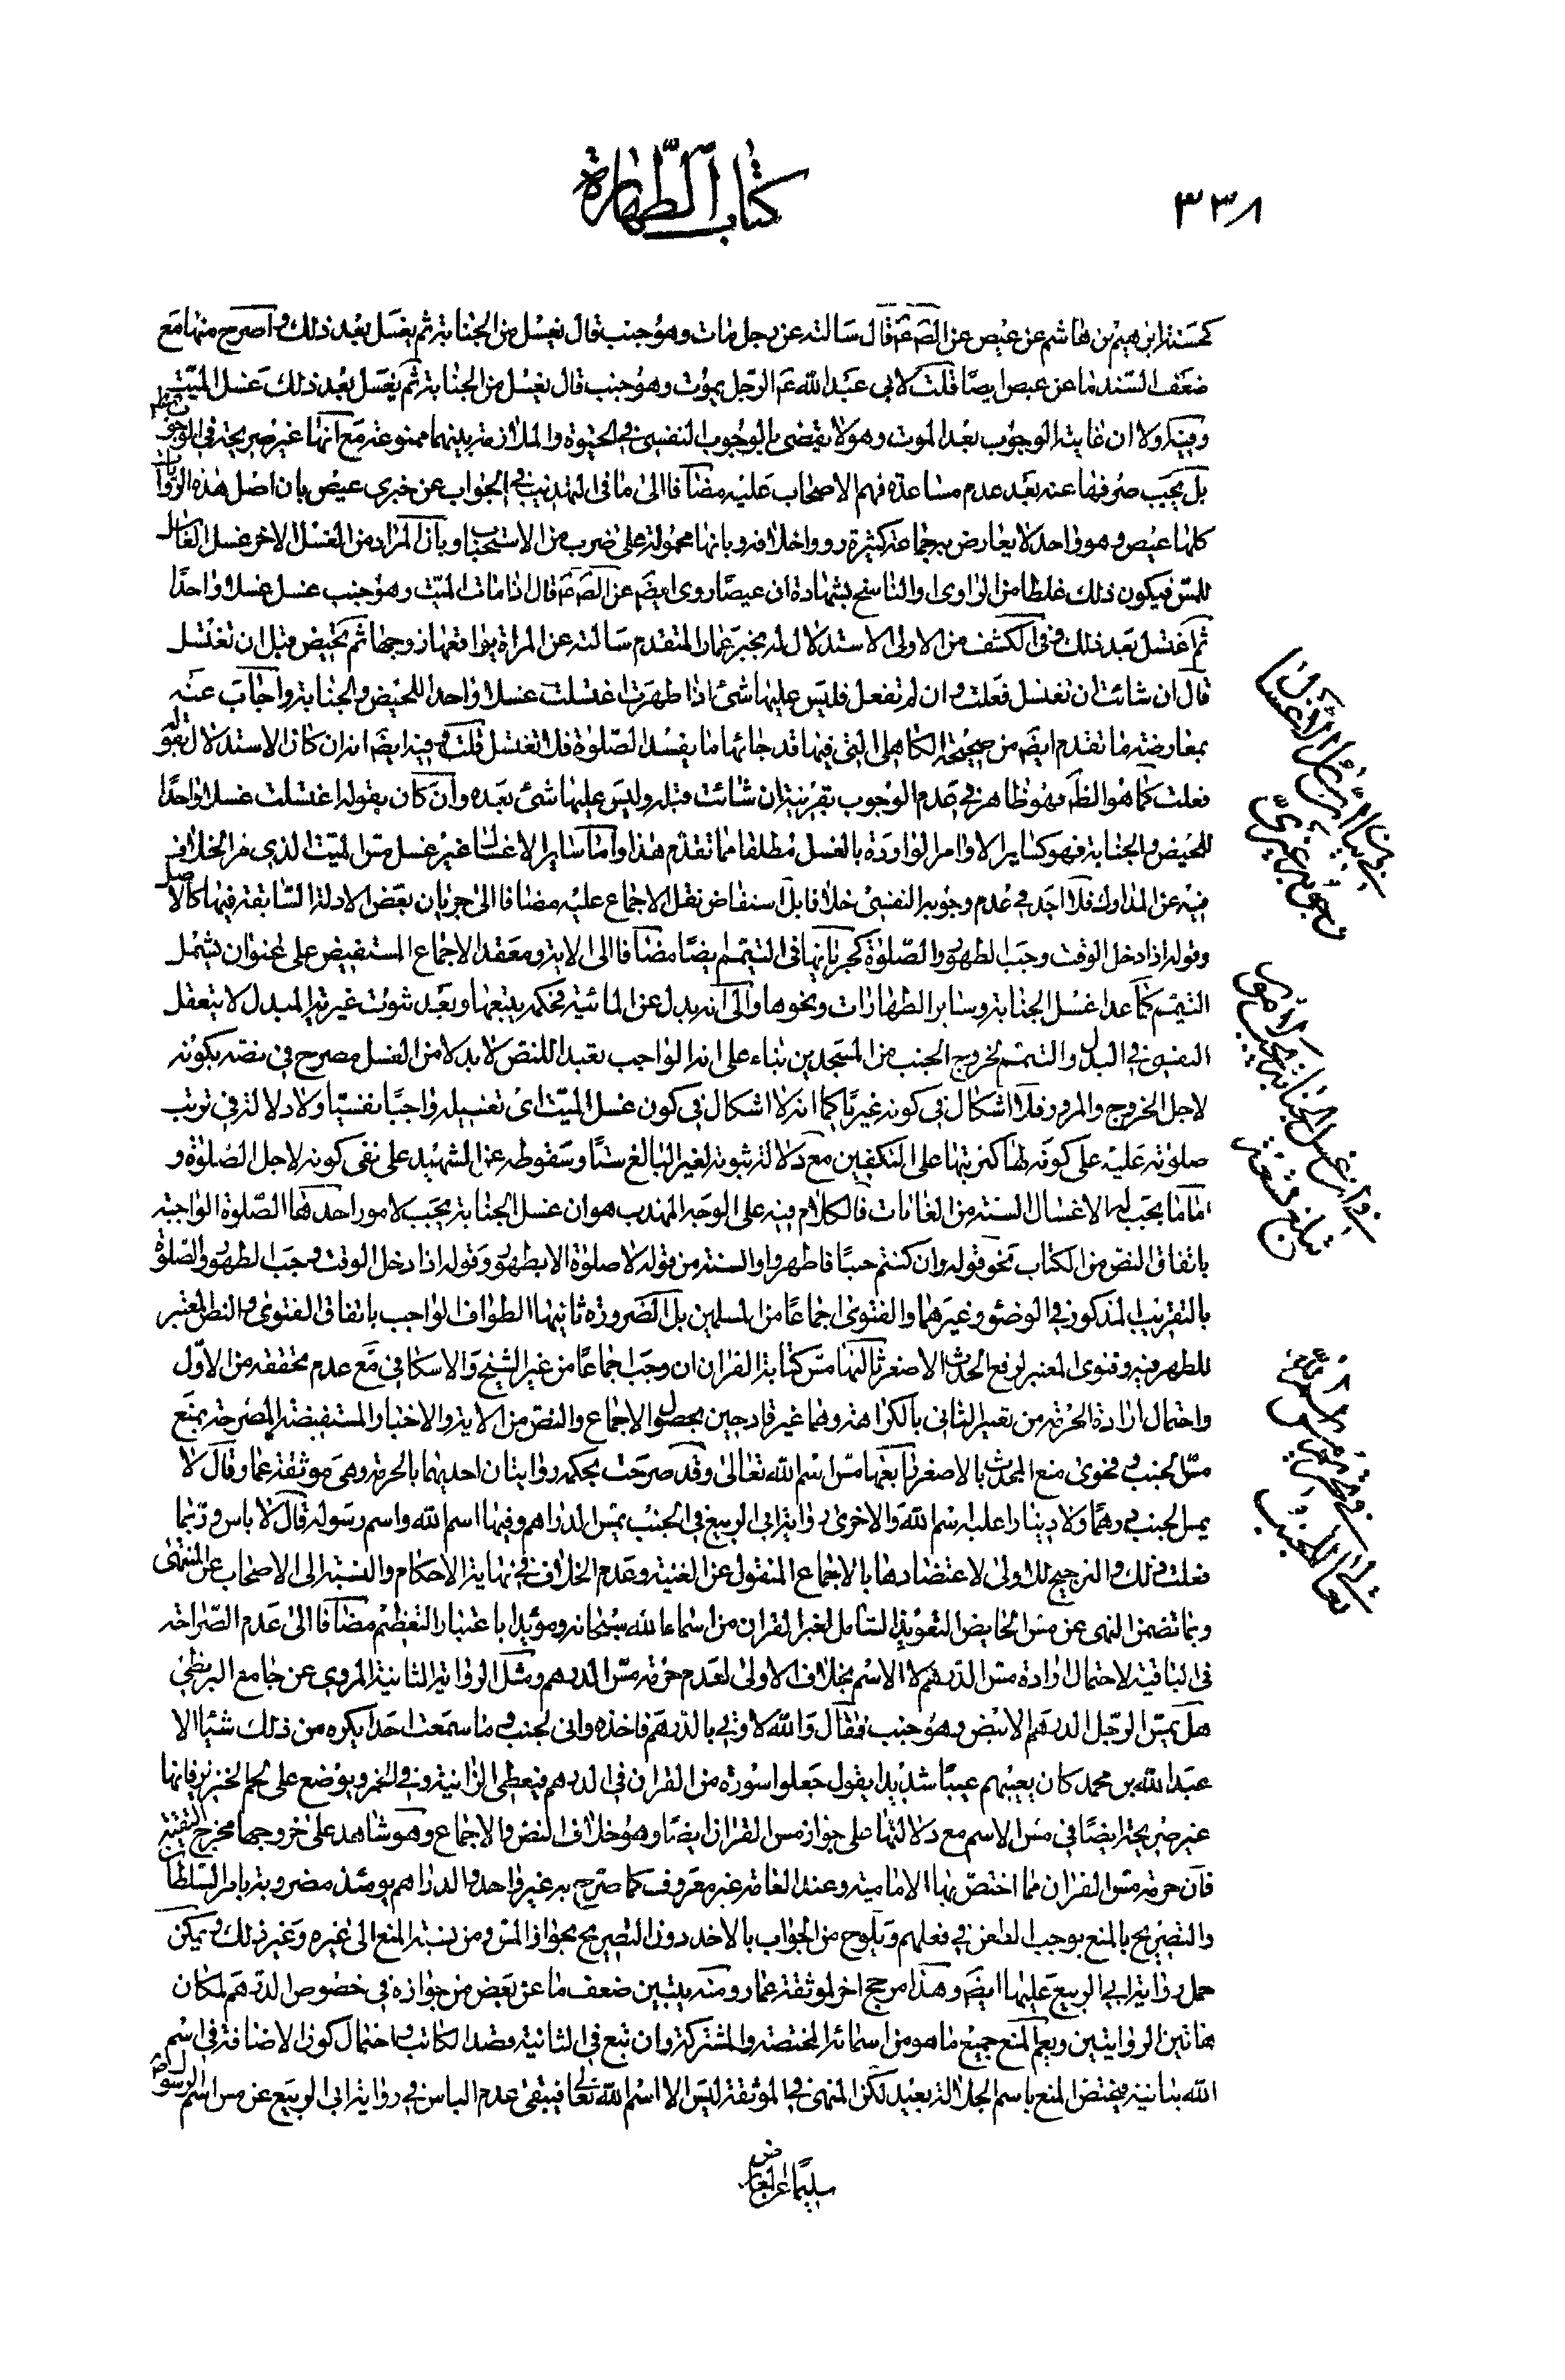 ٣٣٨
كتاب الطهارة
كحسنة ابرهيم بن هاشم عن عيص عن الصّ عَ قال سالته عن رجل مات وهو جنب قال يغسل من الجنابة ثم يغسل بعد ذلك و اصرح منها مع
ضعف السند ما عن عيص ايضا قلت لابى عبد الله عَ الرجل يموت وهو جنب قال يغسل من الجنابة ثم يغسل بعد ذلك غسل الميت
وفيه اولا ان غايته الوجوب بعد الموت وهو لا يقضى بالوجوب النفسى فى الحيوة والملازمة بينهما ممنوعة مع انها غير صريحة فى الوجوب
بل يجب صرفها عنه بعد عدم مساعدة فهم الاصحاب عليه مضافا الى ما فى التهذيب فى الجواب عن خبرى عيص بان اصل هذه الروايات
كلها عيص وهو واحد لا يعارض به جماعة كثيرة رووا خلافه وبانها محمولة على ضرب من الاستحباب وبان المراد من الغسل الاخر غسل الغاسل
للمس فيكون ذلك غلطا من الراوى او الناسخ بشهادة ان عيصا روى ايضَ عن الصّ عَ قال اذا مات الميت وهو جنب غسل غسلا واحدا
ثم اغتسل بعد ذلك وفى الكشف من الاولى الاستدلال له بخبر عمار المتقدم سالته عن المراة يواقعها زوجها ثم تحيض قبل ان تغتسل
قال ان شائت ان تغتسل فعلت وان لم تفعل فليس عليها شئ اذا طهرت اغتسلت غسلا واحدا للحيض والجنابة واجاب عنه
بمعارضة ما تقدم ايضَ من صحيحة الكاهلى التى فيها قد جائها ما يفسد الصلوة فلا تغتسل قلت وفيه ايضَ انه ان كان الاستدلال بقوله
فعلت كما هو الظَ فهو ظاهر فى عدم الوجوب بقرينة ان شائت قبله وليس عليها شئ بعده وان كان بقوله اغتسلت غسلا واحدا
للحيض والجنابة فهو كساير الاوامر الواردة بالغسل مطلقا مما تقدم هذا واما ساير الاغسال غير غسل مس الميت الذى مر الخلاف
فيه عن المدارك فلا اجد فى عدم وجوبه النفسى خلافا بل استفاض نقل الاجماع عليه مضافا الى جريان بعض الادلة السابقة فيها كالاصل
وقوله اذا دخل الوقت وجب الطهور والصلوة كجريانها فى التيمم ايضا مضافا الى الاية ومعقد الاجماع المستفيض على عنوان يشمل
التيمم كما عدا غسل الجنابة وساير الطهارات ونحوها والى انه بدل عن المائية فحكمه يتبعها وبعد ثبوت غيرية المبدل لا يتعقل
النفسى فى البدل والتيمم لخروج الجنب من المسجدين بناء على انه الواجب تعبدا للنص لا بدلا من الغسل مصرح فى نصه بكونه
لاجل الخروج والمرور فلا اشكال فى كونه غيريا كما انه لا اشكال فى كون غسل الميت اى تغسيله واجبا نفسيا ولا دلالة فى ترتب
صلوته عليه على كونه لها كترتبها على التكفين مع دلالة ثبوته لغير البالغ ستا وسقوطه عن الشهيد على نفى كونه لاجل الصلوة و
اما ما يجب له الاغسال الستة من الغايات فالكلام فيه على الوجه المهذب هو ان غسل الجنابة يجب لامور احدها الصلوة الواجبة
باتفاق النص من الكتاب نحو قوله وان كنتم جنبا فاطهروا والسنة من قوله لا صلوة الا بطهور وقوله اذا دخل الوقت وجب الطهور والصلوة
بالتقريب المذكور فى الوضوء وغيرهما والفتوى اجماعا من المسلمين بل الضرورة ثانيها الطواف الواجب باتفاق الفتوى والنص المعتبر
للطهر فيه وفتوى المعتبر لرفع الحدث الاصغر ثالثها مس كتابة القران ان وجب اجماعا من غير الشيخ والاسكافى مع عدم تحققه من الاول
واحتمال ارادة الحرمة من تعبير الثانى بالكراهة وهما غير قادحين بمحصل الاجماع والنص من الاية والاخبار المستفيضة المصرحة بمنع
مس الجنب وفحوى منع المحدث بالاصغر رابعها مس اسم الله تعالى وقد صرحت بحكمه روايتان احديهما بالحرمة وهى موثقة عمار قال لا
يمس الجنب درهما ولا دينارا عليه اسم الله والاخرى رواية ابى الربيع فى الجنب يمس الدراهم وفيها اسم الله واسم رسوله قال لا باس وربما
فعلت ذلك والترجيح للاولى لاعتضادها بالاجماع المنقول عن الغنية وعدم الخلاف فى نهاية الاحكام والنسبة الى الاصحاب عن المنتهى
وبما تضمن النهى عن مس الحايض التعويذ الشامل لغير القران من اسماء الله سبحانه ومؤيدا باعتبار التعظيم مضافا الى عدم الصراحة
فى الباقية لاحتمال ارادة مس الدرهم لا الاسم بخلاف الاولى لعدم حرمة مس الدرهم ومثل الرواية الثانية المروى عن جامع البزنطى
هل يمس الرجل الدرهم الابيض وهو جنب فقال والله لاوتى بالدرهم فاخذه وانى لجنب وما سمعت احدا يكره من ذلك شيئا الا
عبد الله بن محمد كان يعيبهم عيبا شديدا يقول جعلوا سورة من القران فى الدرهم فيعطى الزانية وفى الخمر ويوضع على لحم الخنزير فانها
غير صريحة ايضا فى مس الاسم مع دلالتها على جواز مس القران ايضا وهو خلاف النص والاجماع وهو شاهد على خروجها مخرج التقية
فان حرمة مس القران مما اختص بها الامامية وعند العامة غير معروف كما صرح به غير واحد والدراهم يومئذ مضروبة بامر السلطان
والتصريح بالمنع يوجب الطعن فى فعلهم ويلوح من الجواب بالاخذ دون التصريح بجواز المس ومن نسبة المنع الى غيره وغير ذلك ويمكن
حمل رواية ابى الربيع عليها ايضَ وهذا مرجح اخر لموثقة عمار ومنه يتبين ضعف ما عن بعض من جوازه فى خصوص الدرهم لمكان
هاتين الروايتين ويعم المنع جميع ما هو من اسمائه المختصة والمشتركة وان تبع فى الثانية قصد الكاتب واحتمال كون الاضافة فى اسم
الله بيانية فيختص المنع باسم الجلالة بعيد لكن المنهى فى الموثقة ليس الا اسم الله تعالى فيبقى عدم الباس فى رواية ابى الربيع عن مس اسم الرسول
سليما عن المعارض